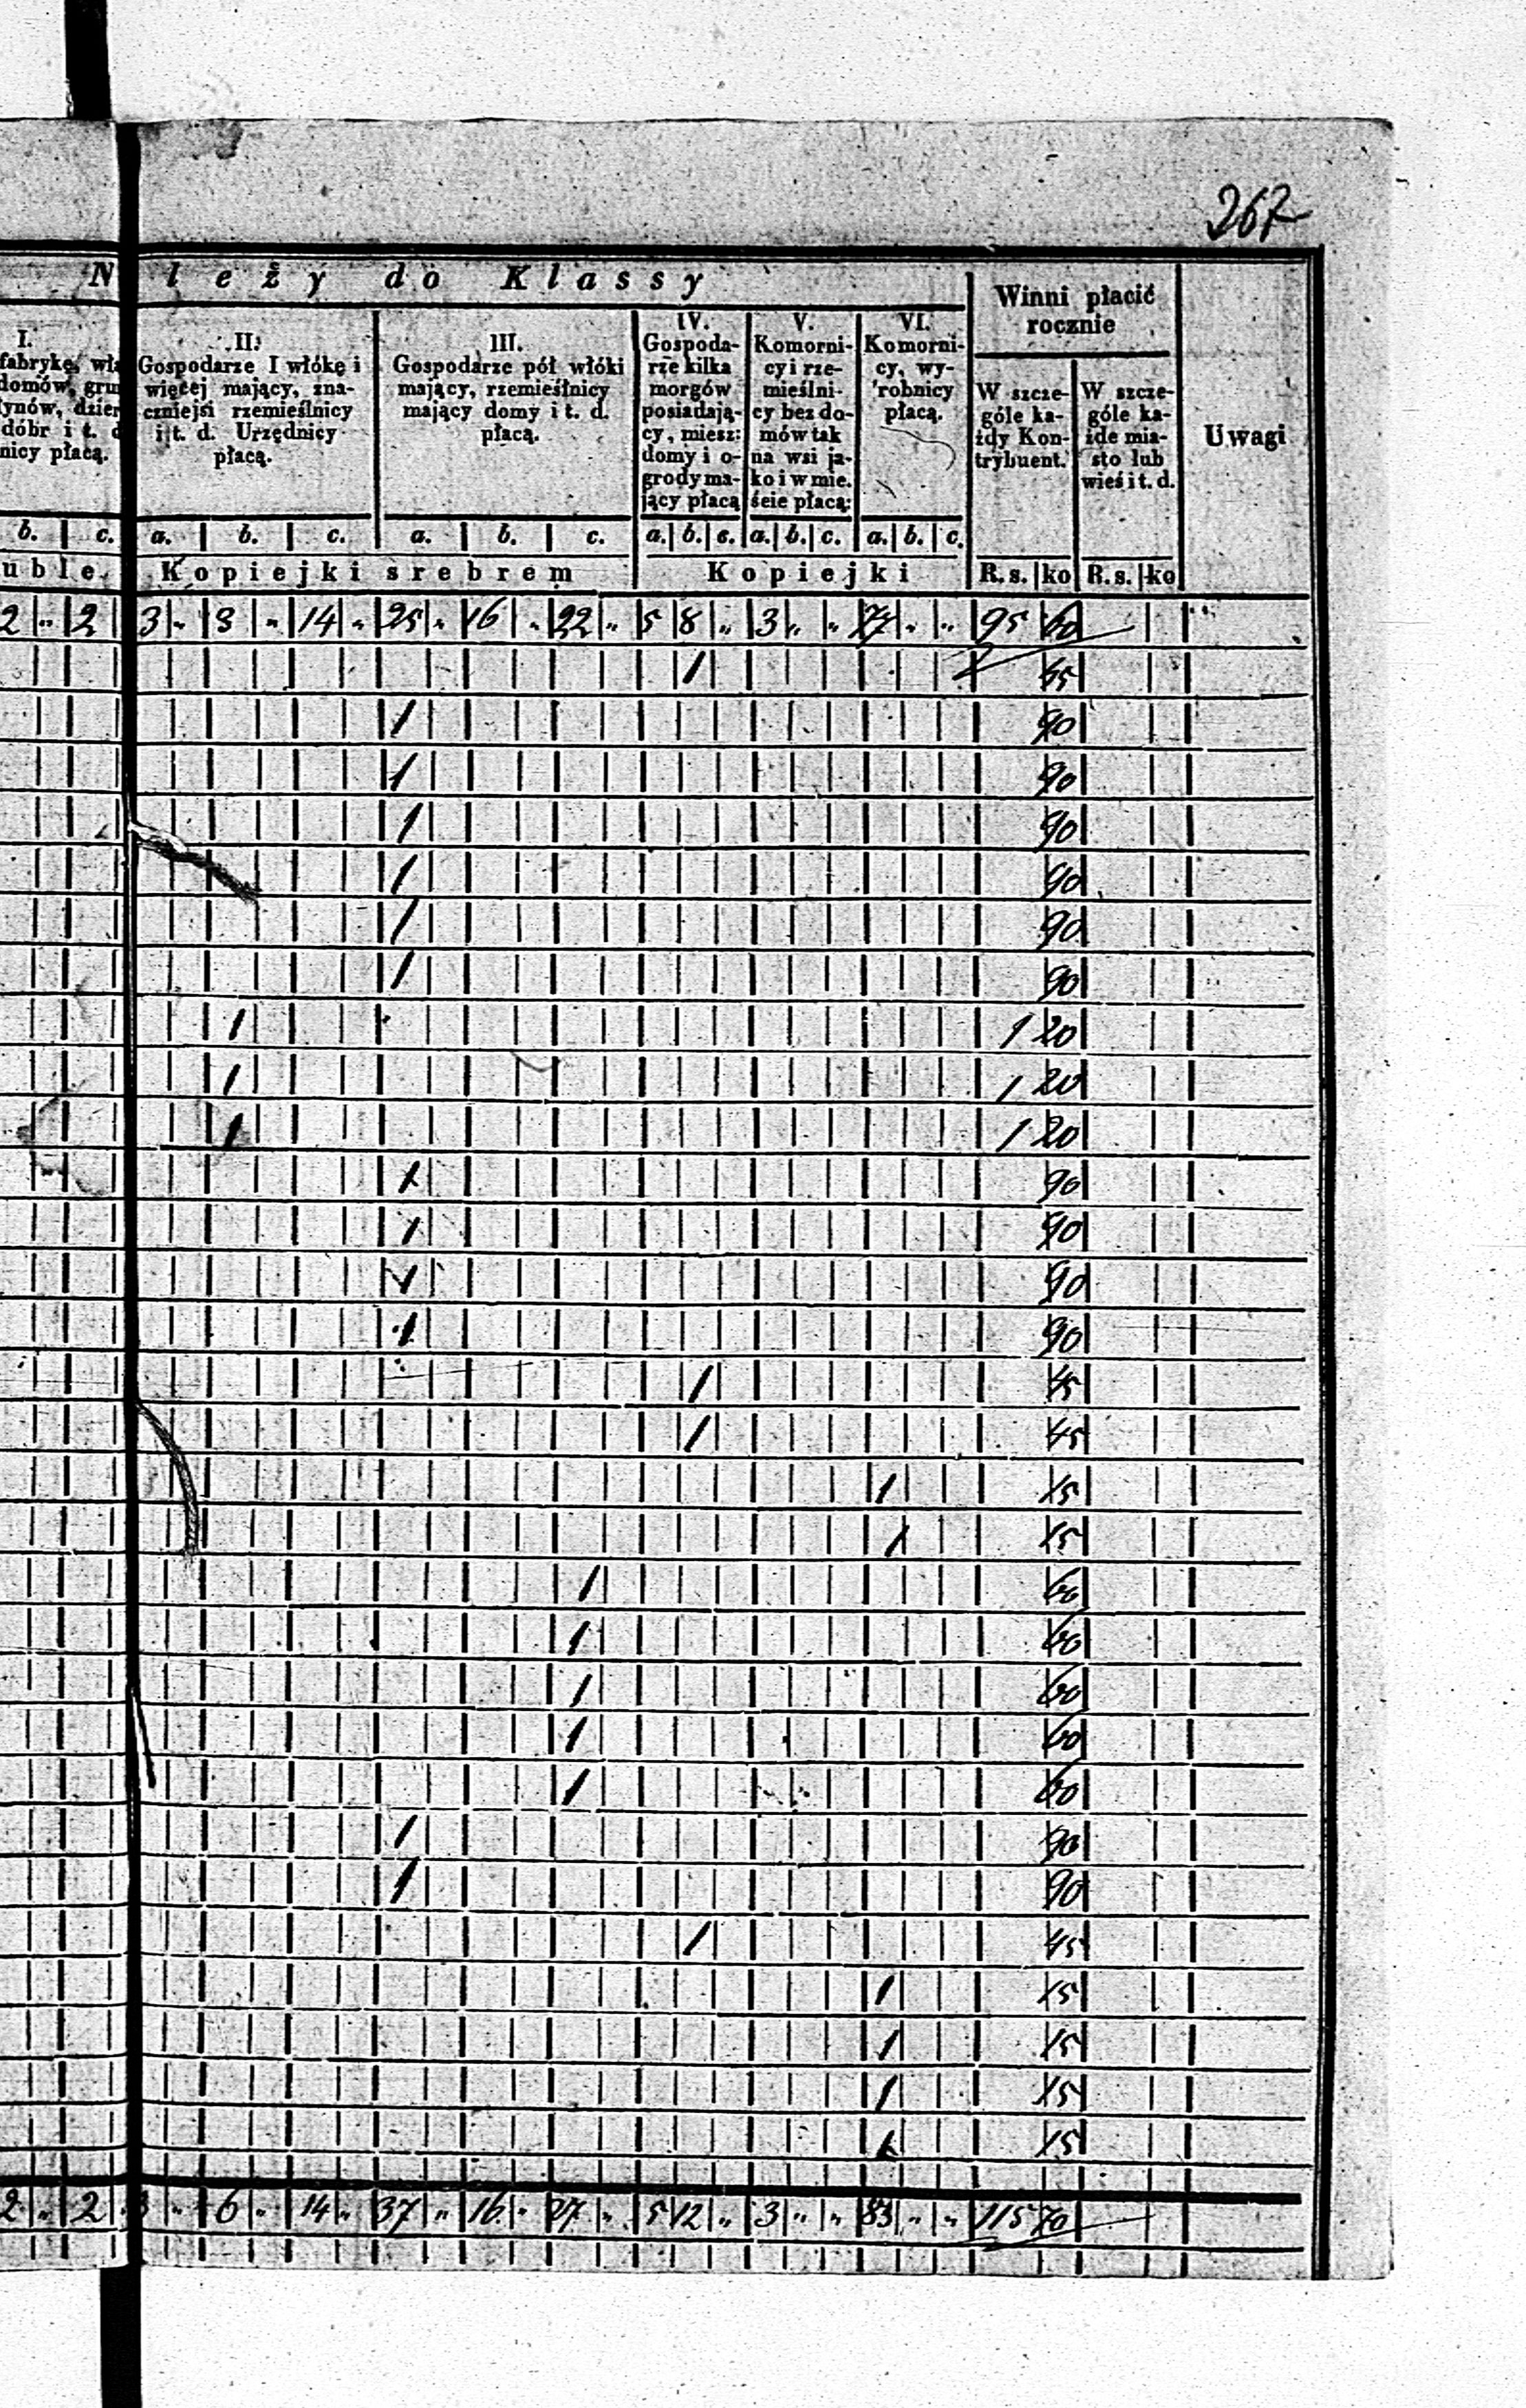 267
N leży do Klassy
Winni płacić rocznie
Uwagi
I.
fabrykę, wła
domów, grun
ynów, dzier
dóbr i t. d
nicy płacą.
II.
Gospodarze I włókę i
więcej mający, zna-
czniejsi rzemieślnicy
i t. d. Urzędnicy
płacą.
III.
Gospodarze pół włóki
mający, rzemieślnicy
mający domy i t. d.
płacą.
IV.
Gospoda-
rze kilka
morgów
posiadają-
cy, miesz:
domy i o-
grody ma-
jący płacą
V.
Komorni-
cy i rze-
mieślni-
cy bez do-
mów tak
na wsi ja-
ko i w mie.
ście płacą:
VI.
Komorni-
cy, wy-
robnicy
płacą.
W szcze-
góle ka-
żdy Kon-
trybuent.
W szcze-
góle ka-
żde mia-
sto lub
wieś i t. d.
b. c. a. b. c. a. b. c. a. b. c. a. b. c. a. b. c.
uble. Kopiejki srebrem Kopiejki R.s. ko R.s. ko
2 " 2 3 " 3 " 14 " 25 " 16 " 22 " 5 8 " 3 " " 77 " " 95 60
1 45
1 90
1 90
1 90
1 90
1 90
1 90
1 1 20
1 1 20
1 1 20
1 90
1 90
1 90
1 90
1 45
1 45
1 15
1 15
1 60
1 60
1 60
1 60
1 60
1 90
1 90
1 45
1 15
1 15
1 15
1 15
2 " 2 3 " 6 " 14 " 37 " 16 " 27 " 5 12 " 3 " " 83 " " 115 70